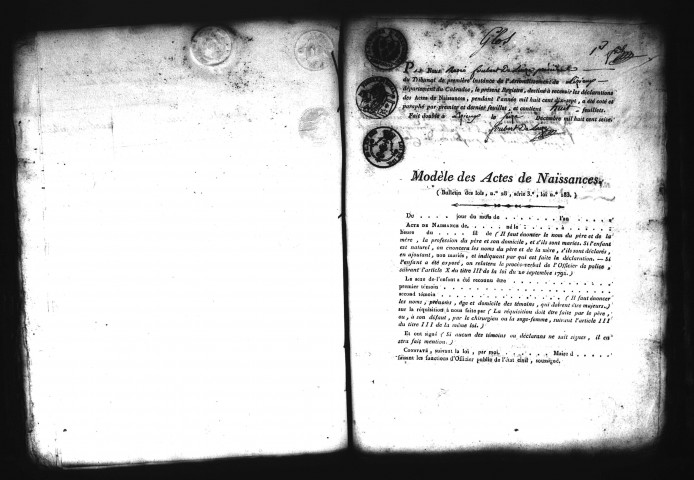 Glos
Par Nous
du Tribunal de première instance de l'Arrondissement de Lizieux
département du Calvados, le présent Registre, destiné à recevoir les déclarations
des Actes de Naissances, pendant l'année mil huit cent dix-sept, a été coté et
paraphé par premier et dernier feuillet, et contient huit feuillets.
Fait double à Lizieux le Décembre mil huit cent seize
Modèle des Actes de Naissances.
( Bulletin des lois, n.° 28, série 3.e, loi n.° 183. )
Du . . . . . jour du mois de . . . . . . . l'an . . . .
ACTE DE NAISSANCE de. . . . . . . né le . . . . . à . . . .
heure du . . . . . fil de ( Il faut énoncer le nom du père et de la
mère, la profession du père et son domicile, et s'ils sont mariés. Si l'enfant
est naturel, on énoncera les noms du père et de la mère, s'ils sont déclarés,
en ajoutant, non mariés, et indiquant par qui est faite la déclaration. — Si
l'enfant a été exposé, on relatera le procès-verbal de l'Officier de police,
suivant l'article X du titre III de la loi du 20 septembre 1792. )
Le sexe de l'enfant a été reconnu être . . . . . . . . .
premier témoin . . . . . . . . . .
second témoin . . . . . . . . . . ( Il faut énoncer
les noms, prénoms, âge et domicile des témoins, qui doivent être majeurs. )
sur la réquisition à nous faite par ( La réquisition doit être faite par le père,
ou, à son défaut, par le chirurgien ou la sage-femme, suivant l'article III
du titre III de la même loi. )
Et ont signé ( Si aucun des témoins ou déclarans ne sait signer, il en
sera fait mention. )
CONSTATÉ, suivant la loi, par moi. . . . . . . Maire d . . . .
faisant les fonctions d'Officier public de l'état civil, soussigné.